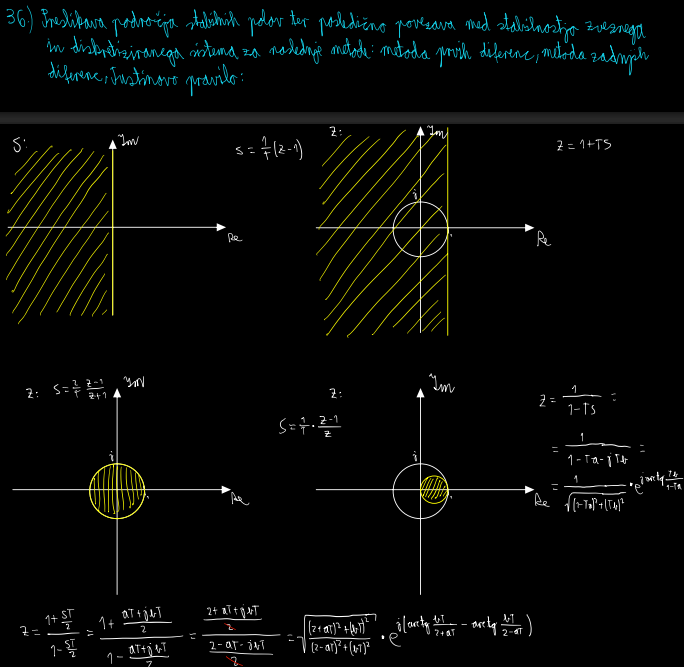 36) Preslikava področja stabilnih polov ter posledično povezava med stabilnostjo zveznega
in diskretiziranega sistema za naslednje metode: metoda prvih diferenc, metoda zadnjih
diferenc, Tustinovo pravilo:
S:
Im
Re
S = 1/T (z-1)
z:
Im
j
1
Re
z = 1+TS
z:
S = 2/T (z-1)/(z+1)
Im
j
1
Re
z:
S = 1/T · (z-1)/z
Im
j
1
Re
z = 1/(1-TS) =
= 1/(1-Ta-jTb) =
= 1/√((1-Ta)²+(Tb)²) · e^(j arctg Tb/(1-Ta))
z = (1+ST/2)/(1-ST/2) = (1+(aT+jbT)/2)/(1-(aT+jbT)/2) = ((2+aT+jbT)/2)/((2-aT-jbT)/2) = √(((2+aT)²+(bT)²)/((2-aT)²+(bT)²)) · e^(j(arctg bT/(2+aT) - arctg bT/(2-aT)))